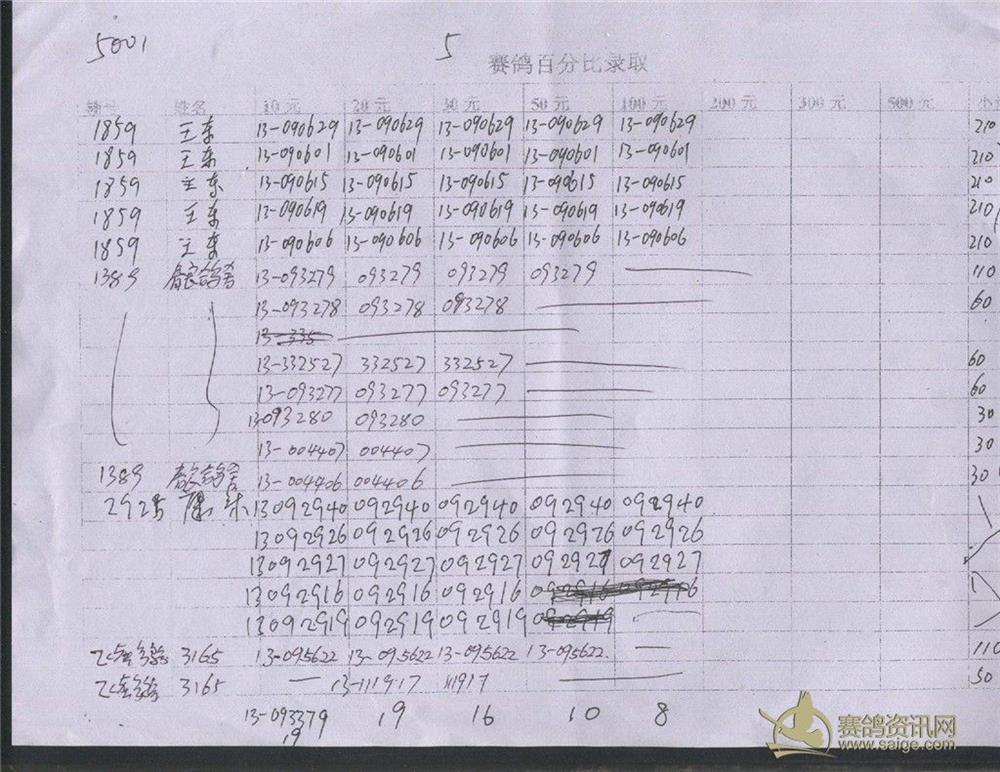 5001 5
赛鸽百分比录取
姓名 10元 20元 30元 50元 100元 200元 300元 500元 小
1859 王东 13-090629 13-090629 13-090629 13-090629 13-090629 210
1859 王东 13-090601 13-090601 13-090601 13-090601 13-090601 210
1859 王东 13-090615 13-090615 13-090615 13-090615 13-090615 210
1859 王东 13-090619 13-090619 13-090619 13-090619 13-090619 210
1859 王东 13-090606 13-090606 13-090606 13-090606 13-090606 210
1389 鸽舍 13-093279 093279 093279 093279 110
13-093278 093278 093278 60
13-335
13-332527 332527 332527 60
13-093277 093277 093277 60
13093280 093280 30
13-004407 004407 30
1389 鸽舍 13-004406 004406 30
292 13092940 092940 092940 092940 092940
13092926 092926 092926 092926 092926
13092927 092927 092927 092927 092927
13092916 092916 092916 092916
13092919 092919 092919 092919
3165 13-095622 13-095622 13-095622 13-095622 110
3165 13-111917 111917 50
13-093379 19 16 10 8
19
赛鸽资讯网
www.saige.com